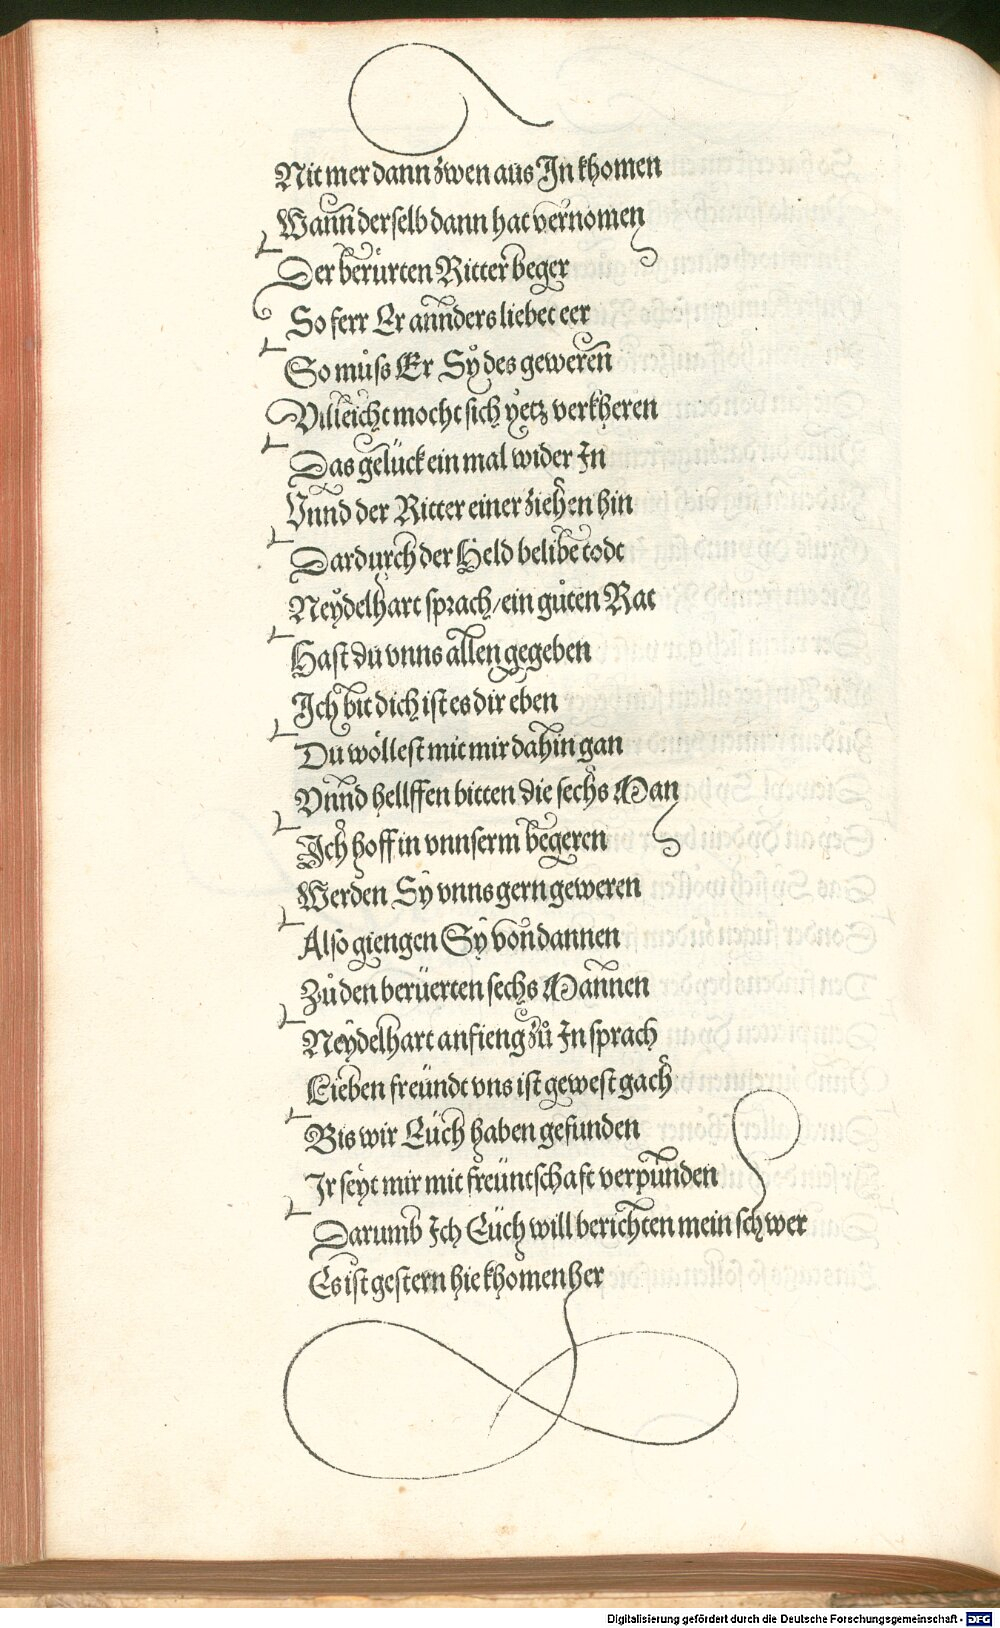 Nit mer dann zwen aus In khomen
Wann derselb dann hat vernomen
Der berürten Ritter beger
So ferr Er annders liebet eer
So můss Er Sy des geweren
Villeicht mocht sich yetz verkheren
Das gelück ein mal wider In
Vnnd der Ritter einer ziehen hin
Dardurch der Held belibe todt
Neydelhart sprach/ein gůten Rat
Hast du vnns allen gegeben
Ich bit dich ist es dir eben
Du wöllest mit mir dahin gan
Vnnd hellffen bitten die sechs Man
Ich hoff in vnnserm begeren
Werden Sy vnns gern geweren
Also giengen Sy von dannen
Zů den berüerten sechs Mannen
Neydelhart anfieng zů In sprach
Lieben freündt vns ist gewest gach
Bis wir Eüch haben gefunden
Ir seyt mir mit freüntschaft verpunden
Darumb Ich Eüch will berichten mein schwer
Es ist gestern hie khomen her
Digitalisierung gefördert durch die Deutsche Forschungsgemeinschaft - DFG